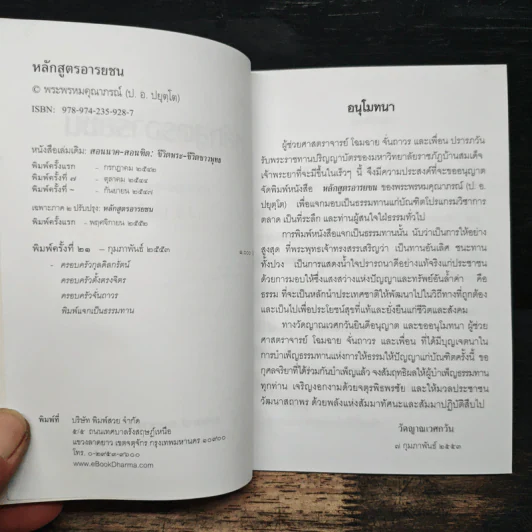 หลักสูตรอารยชน
© พระพรหมคุณาภรณ์ (ป. อ. ปยุตฺโต)
ISBN: 978-974-235-928-7
หนังสือเล่มเดิม: สอนนาค-สอนทิด: ชีวิตพระ-ชีวิตชาวพุทธ
พิมพ์ครั้งแรก - กรกฎาคม ๒๕๔๒
พิมพ์ครั้งที่ ๗ - ตุลาคม ๒๕๔๔
พิมพ์ครั้งที่ ~ - กันยายน ๒๕๔๗
เฉพาะภาค ๒ ปรับปรุง: หลักสูตรอารยชน
พิมพ์ครั้งแรก - พฤศจิกายน ๒๕๕๒
พิมพ์ครั้งที่ ๒๑ - กุมภาพันธ์ ๒๕๕๓
- ครอบครัวกุลดิลกรัตน์
ครอบครัวตั้งตรงจิตร
ครอบครัวจั่นถาวร
พิมพ์แจกเป็นธรรมทาน
พิมพ์ที่ บริษัท พิมพ์สวย จำกัด
๕/๕ ถนนเทศบาลรังสฤษฎ์เหนือ
แขวงลาดยาว เขตจตุจักร กรุงเทพมหานคร ๑๐๙๐๐
โทร. ๐-๒๙๕๓-๙๖๐๐
www.eBookDharma.com
อนุโมทนา
ผู้ช่วยศาสตราจารย์ โฉมฉาย จั่นถาวร และเพื่อน ปรารภวัน
รับพระราชทานปริญญาบัตรของมหาวิทยาลัยราชภัฏบ้านสมเด็จ
เจ้าพระยาที่จะมีขึ้นในเร็วๆ นี้ จึงมีความประสงค์ที่จะขออนุญาต
จัดพิมพ์หนังสือ หลักสูตรอารยชน ของพระพรหมคุณาภรณ์ (ป. อ.
ปยุตฺโต) เพื่อแจกมอบเป็นธรรมทานแก่บัณฑิตโปรแกรมวิชาการ
ตลาด เป็นที่ระลึก และท่านผู้สนใจใฝ่ธรรมทั่วไป
การพิมพ์หนังสือแจกเป็นธรรมทานนั้น นับว่าเป็นการให้อย่าง
สูงสุด ที่พระพุทธเจ้าทรงสรรเสริญว่า เป็นทานอันเลิศ ชนะทาน
ทั้งปวง เป็นการแสดงน้ำใจปรารถนาดีอย่างแท้จริงแก่ประชาชน
ด้วยการมอบให้ซึ่งแสงสว่างแห่งปัญญาและทรัพย์อันล้ำค่า คือ
ธรรม ที่จะเป็นหลักนำประเทศชาติให้พัฒนาไปในวิถีทางที่ถูกต้อง
และเป็นไปเพื่อประโยชน์สุขที่แท้และยั่งยืนแก่ชีวิตและสังคม
ทางวัดญาณเวศกวันยินดีอนุญาต และขออนุโมทนา ผู้ช่วย
ศาสตราจารย์ โฉมฉาย จั่นถาวร และเพื่อน ที่ได้มีบุญเจตนาใน
การบำเพ็ญธรรมทานแห่งการให้ธรรมให้ปัญญาแก่บัณฑิตครั้งนี้ ขอ
กุศลจริยาที่ได้ร่วมกันบำเพ็ญแล้ว จงสัมฤทธิผลให้ผู้บำเพ็ญธรรมทาน
ทุกท่าน เจริญงอกงามด้วยจตุรพิธพรชัย และให้มวลประชาชน
วัฒนาสถาพร ด้วยพลังแห่งสัมมาทัศนะและสัมมาปฏิบัติสืบไป
วัดญาณเวศกวัน
๘ กุมภาพันธ์ ๒๕๕๓